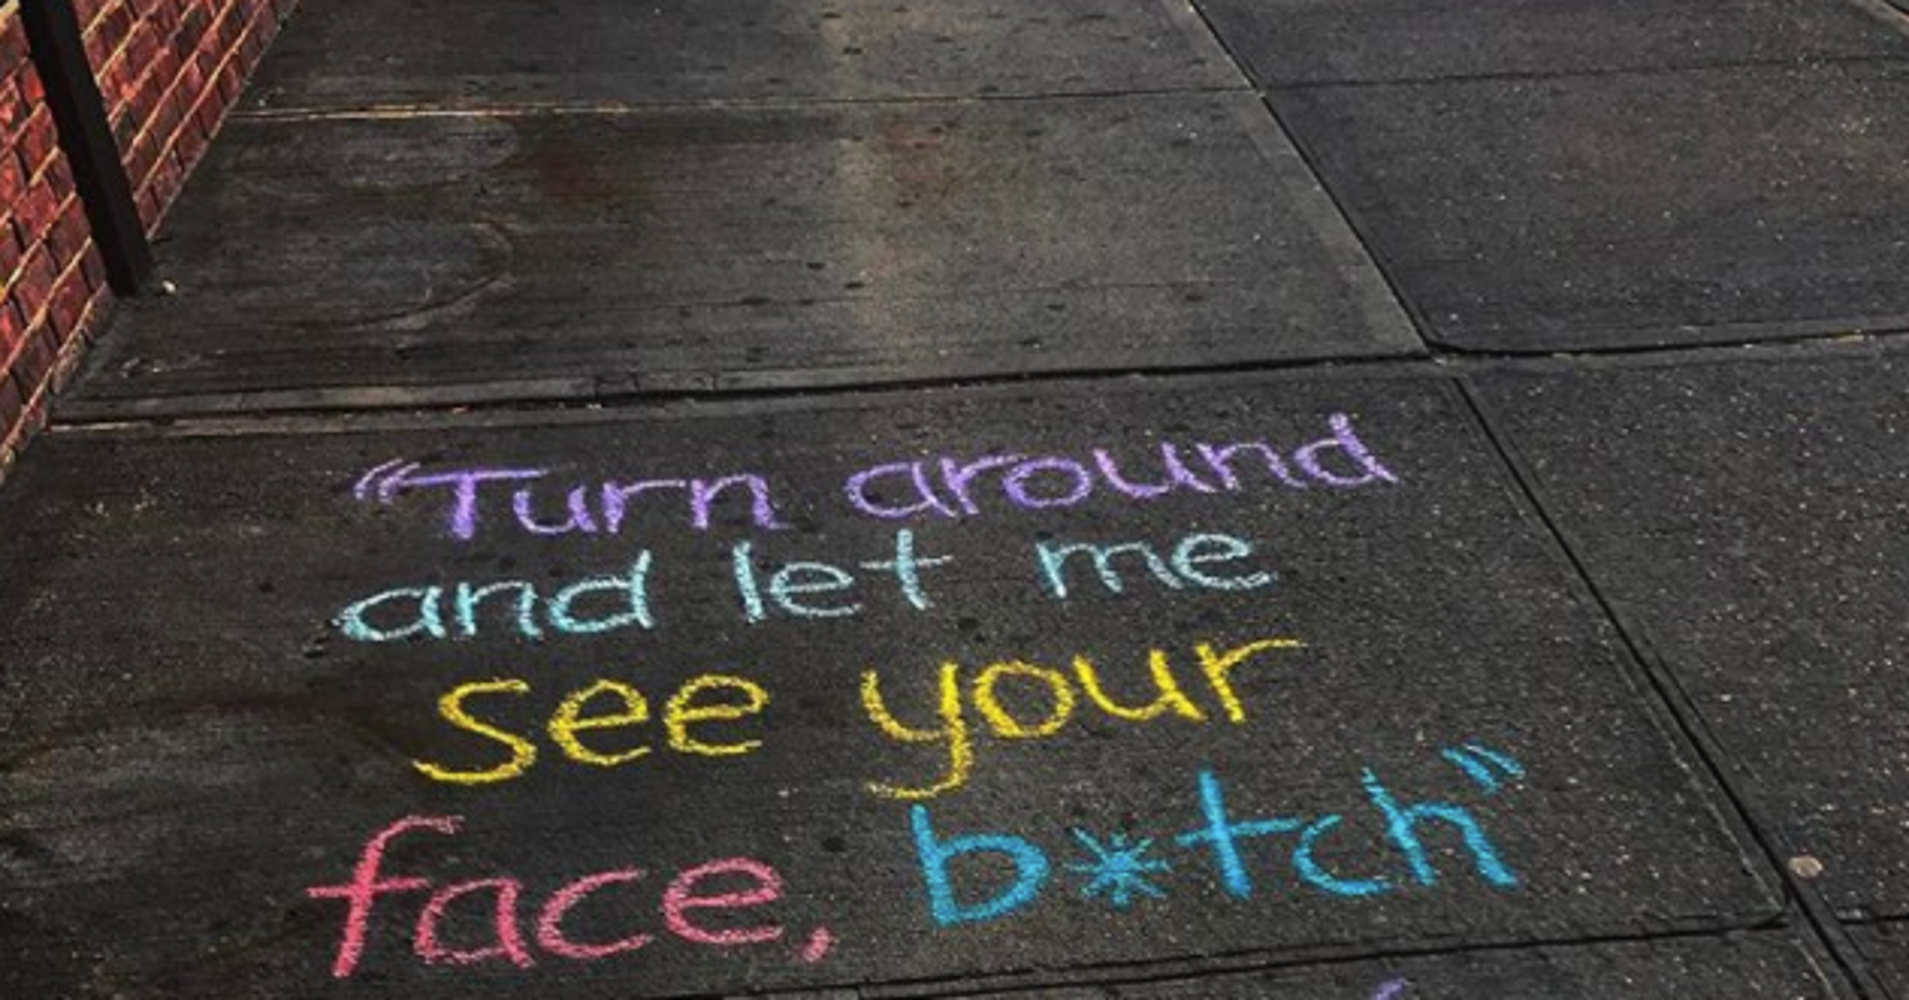 “Turn around
and let me
see your
face, b*tch”